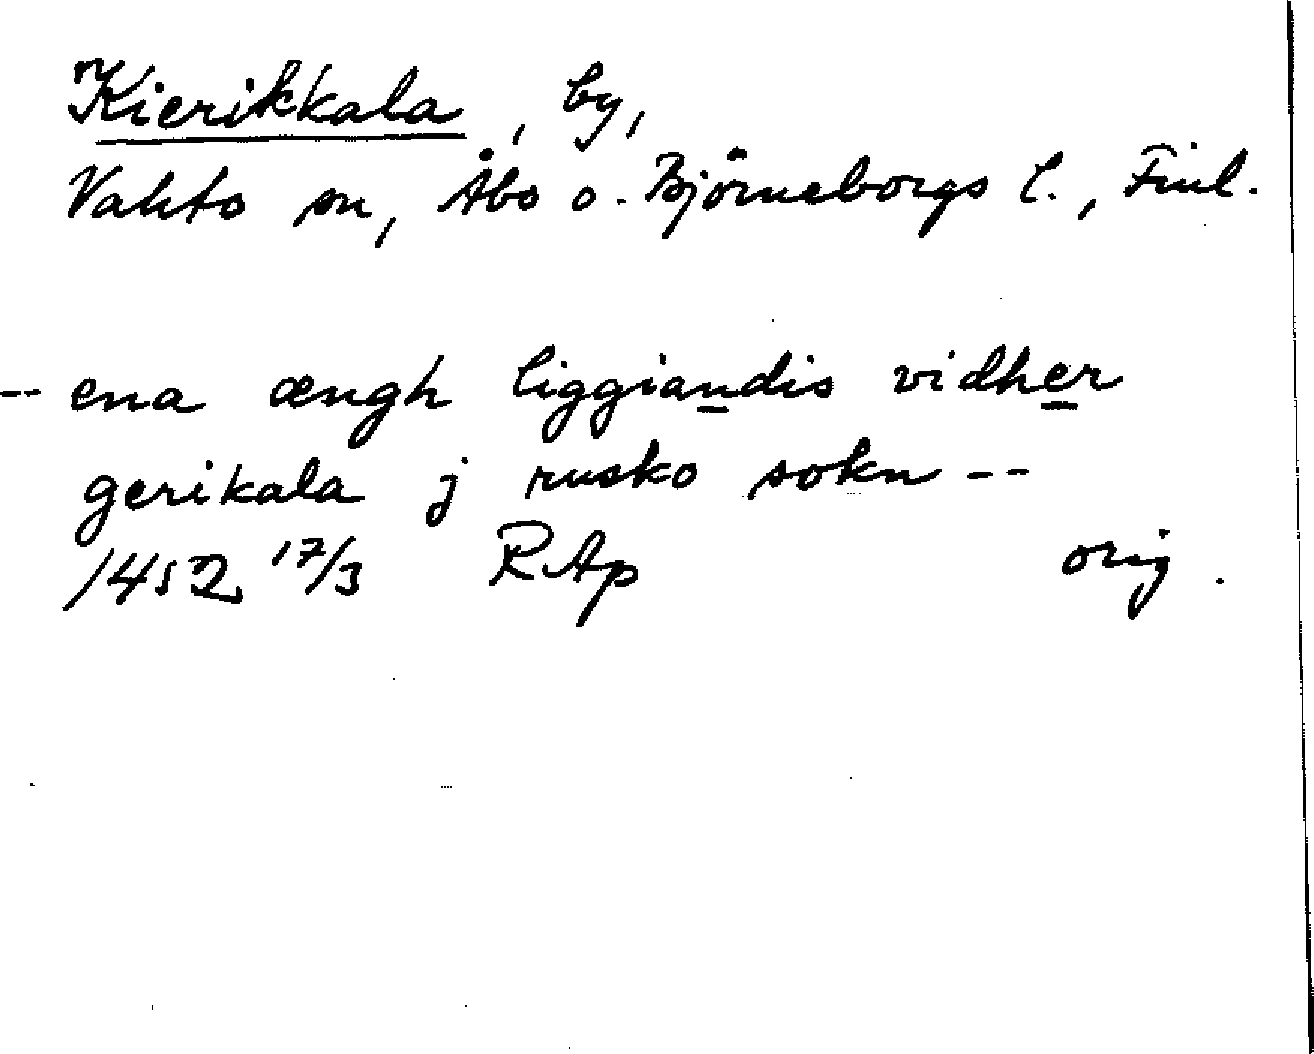 Kierikkala, by,
Vahto sn, Åbo o. Björneborgs l., Finl.
-- ena ængh liggiandis vidher
gerikala j rusko sokn --
1452 17/3 RAp orig.